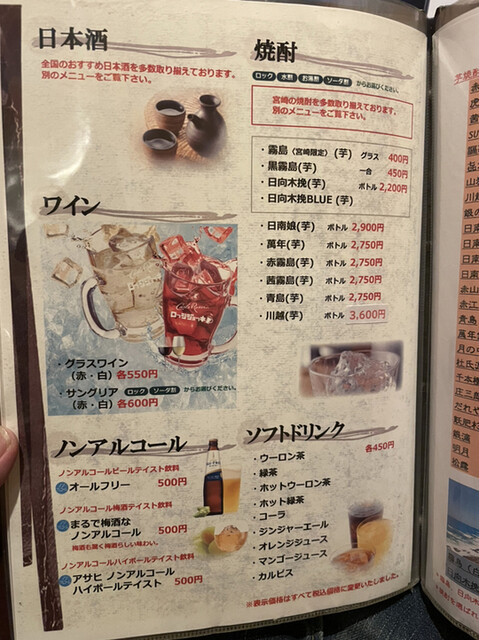 日本酒
全国のおすすめ日本酒を多数取り揃えております。
別のメニューをご覧下さい。
ワイン
・グラスワイン
（赤・白）各550円
・サングリア ロック ソーダ割 からお選びください。
（赤・白）各600円
ノンアルコール
ノンアルコールビールテイスト飲料
オールフリー 500円
ノンアルコール梅酒テイスト飲料
まるで梅酒な
ノンアルコール 500円
梅酒も驚く梅酒らしい味わい。
ノンアルコールハイボールテイスト飲料
アサヒ ノンアルコール
ハイボールテイスト 500円
焼酎
ロック 水割 お湯割 ソーダ割 からお選びください。
宮崎の焼酎を多数取り揃えております。
別のメニューをご覧下さい。
・霧島〈宮崎限定〉(芋) グラス 400円
・黒霧島(芋) 一合 450円
・日向木挽(芋) ボトル 2,200円
・日向木挽BLUE (芋)
・日南娘(芋) ボトル 2,900円
・萬年(芋) ボトル 2,750円
・赤霧島(芋) ボトル 2,750円
・茜霧島(芋) ボトル 2,750円
・青島(芋) ボトル 2,750円
・川越(芋) ボトル 3,600円
ソフトドリンク
各450円
・ウーロン茶
・緑茶
・ホットウーロン茶
・ホット緑茶
・コーラ
・ジンジャーエール
・オレンジジュース
・マンゴージュース
・カルピス
※表示価格はすべて税込価格に変更いたしました。